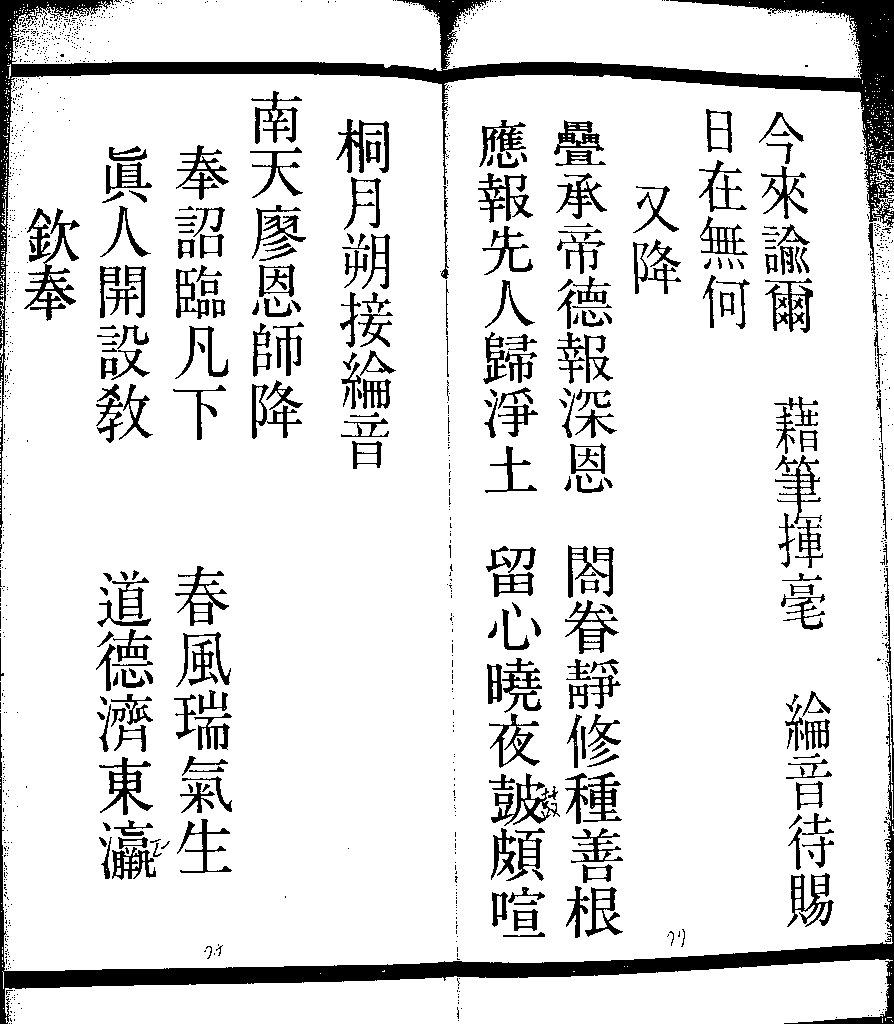 今來諭爾 藉筆揮毫 綸音待賜
日在無何
又降
疊承帝德報深恩 閤眷靜修種善根
應報先人歸淨土 留心曉夜皷頗喧
鼓
桐月朔接綸音
南天廖恩師降
奉詔臨凡下 春風瑞氣生
眞人開設教 道德濟東瀛
欽奉